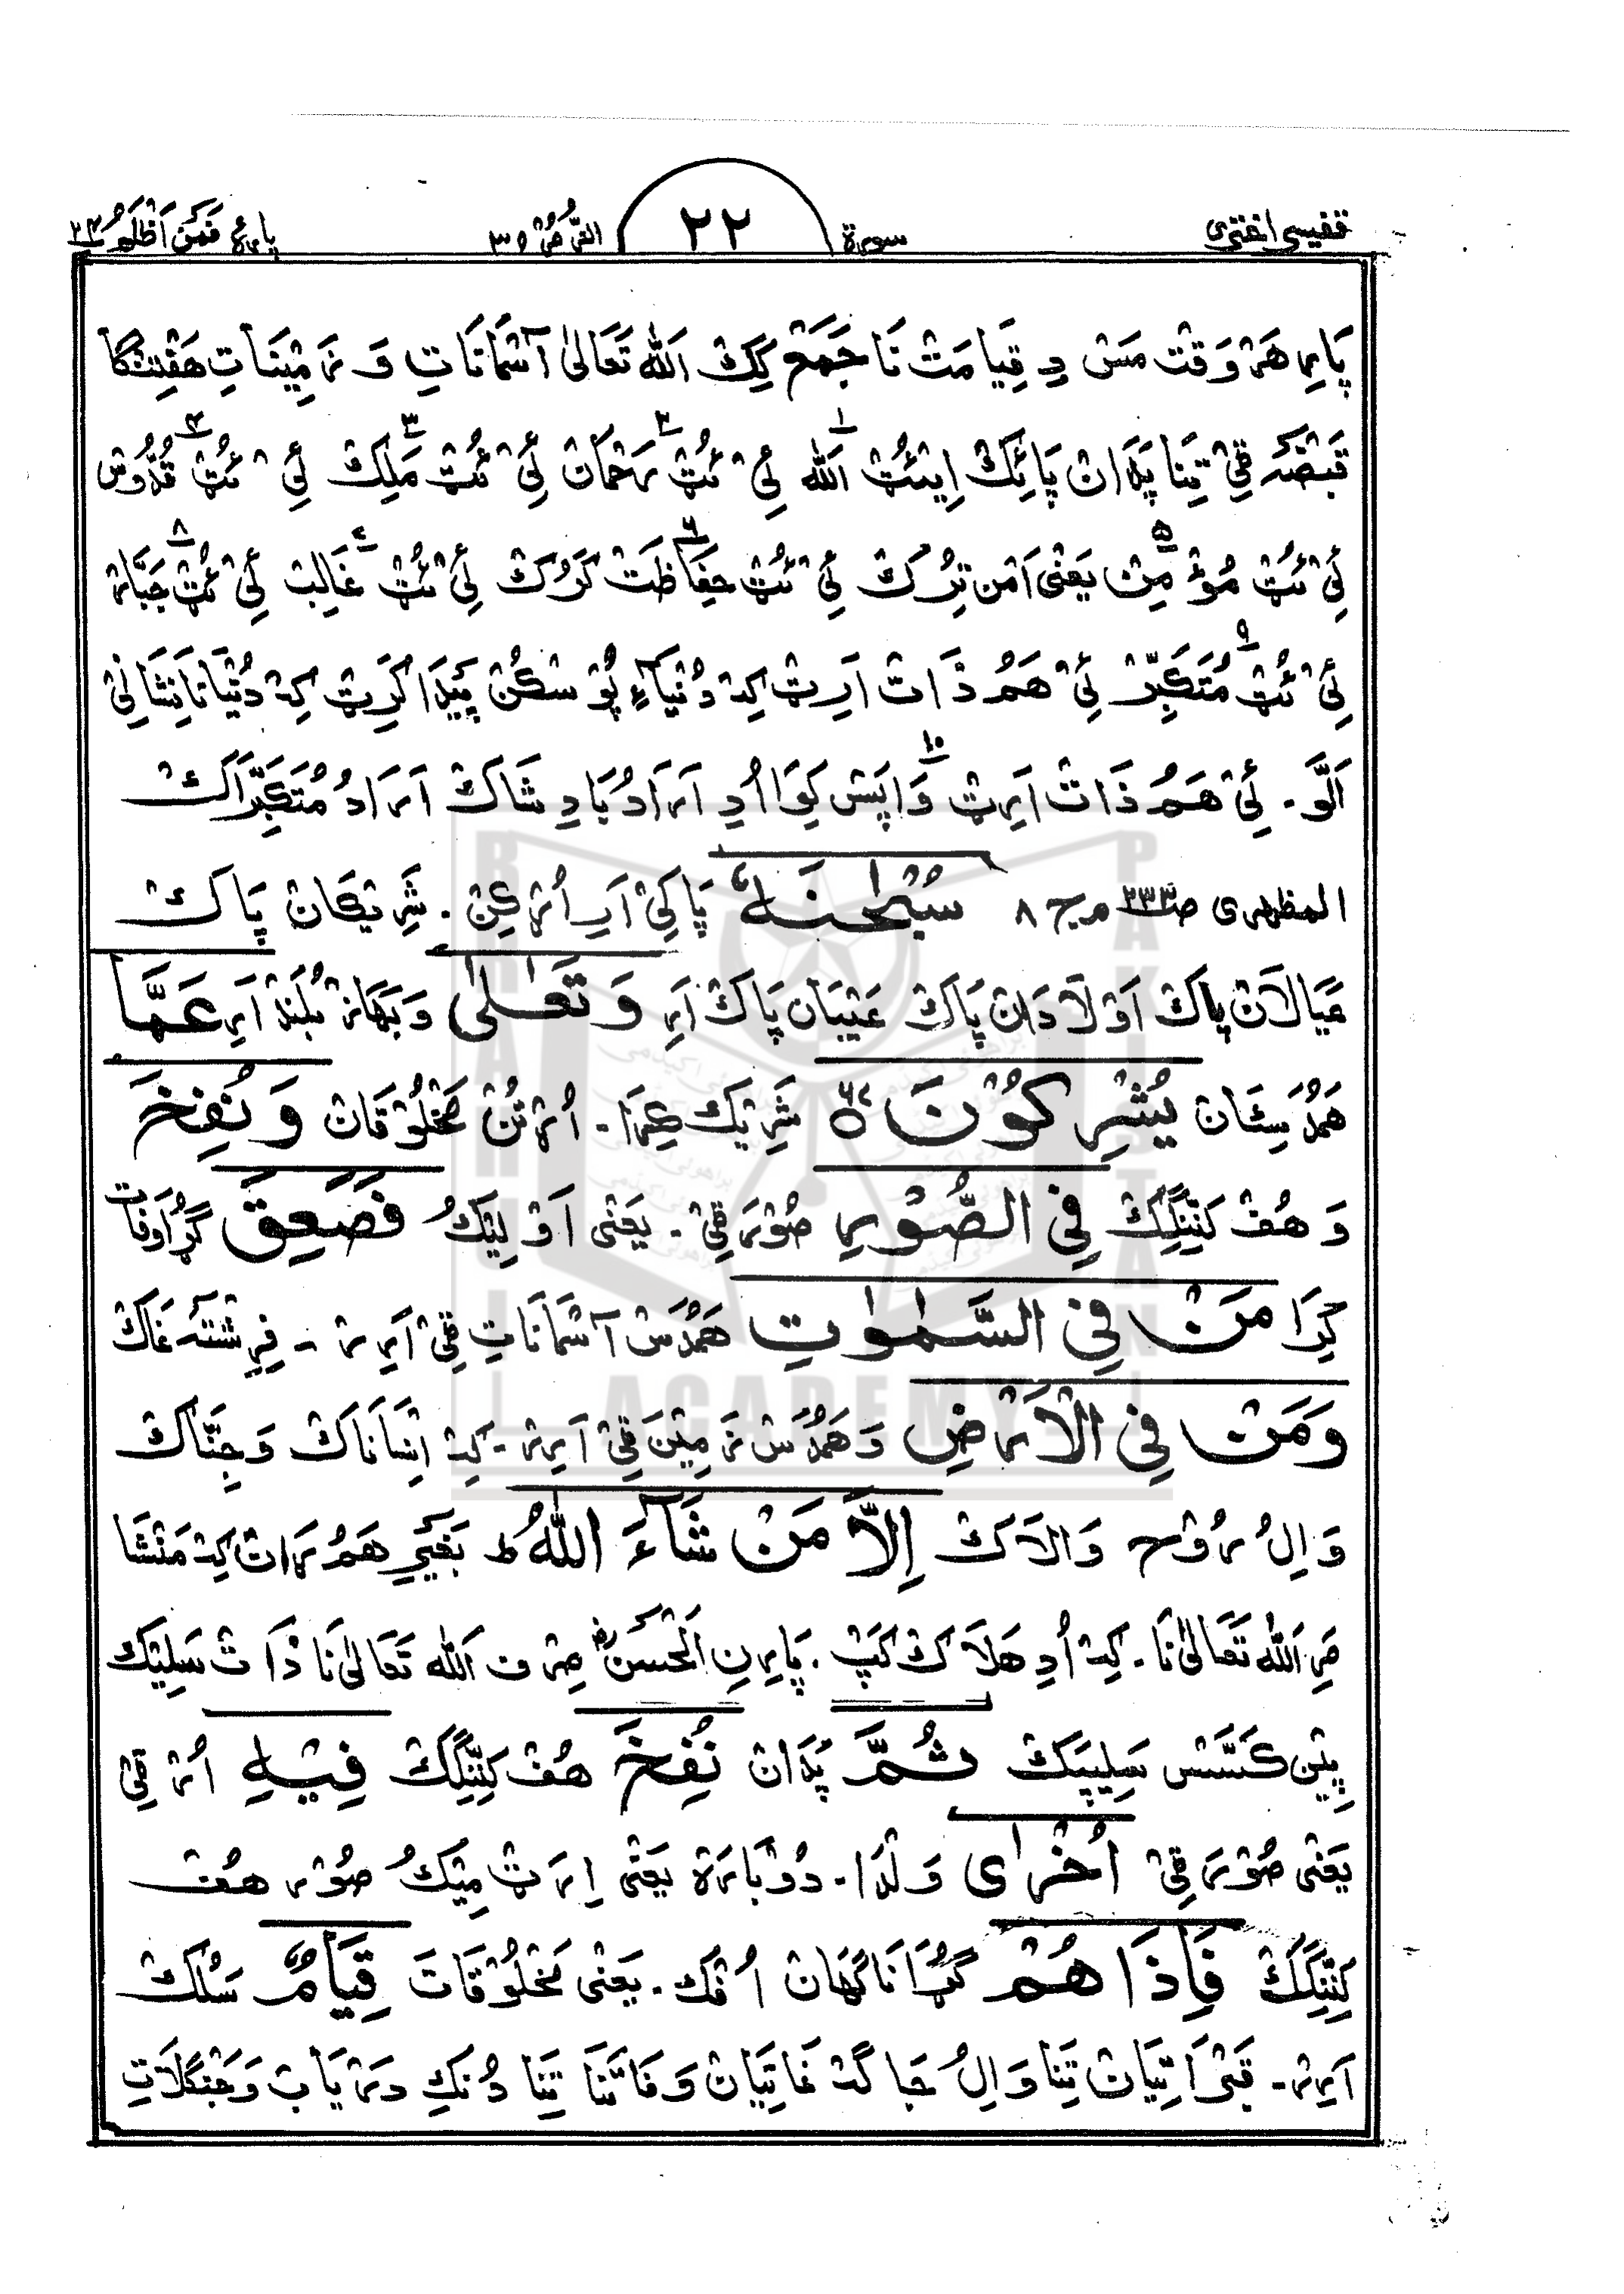 تفسیر اختری
سورة
٢٢
الزُّمَر ٣٩
پارہ فَمَنْ اَظْلَمُ ٢٤
پَارِہ هَرْوَقْت مَسْ دِ قِیَامَتْ نَا جَمَعْ کِکْ اَللّٰه تَعَالیٰ آسْمَانَاتِ وَ زَمِیْنَاتِ هَفْتِنْگَا
قَبْضَہ ٹِیْ تِنَا پَدَانْ پَائِکْ اِیْنُٹْ اَللّٰه ١ اِیْ نُٹْ رَحْمَانْ ٢ اِیْ نُٹْ مَلِکْ ٣ اِیْ نُٹْ قُدُّوْسْ ٤
اِیْ نُٹْ مُؤْمِنْ ٥ یَعْنِی اَمَنْ تِرُکْ اِیْ نُٹْ حِفَاظَتْ ٦ کَرُکْ اِیْ نُٹْ غَالِبْ ٧ اِیْ نُٹْ جَبَّارْ ٨
اِیْ نُٹْ مُتَکَبِّرْ ٩ اِیْ هَمُ ذَاتْ اَرِٹْ کِہ دُنْیَاءِ پُوْسْکُنْ پَیْدَا کَرِٹْ کِہ دُنْیَا نَا نِشَانِیْ
اَلَّوْ۔ اِیْ هَمُ ذَاتْ اَرِٹْ ١٠ وَاپَسْ کِوَا اُدِ اَرَادُ بَادِشَاکْ اَرَادُ مُتَکَبِّرَاکْ
المظهری ص٢٣٣ ج ٨ سُبْحٰنَهٗ پَاکِیْ اَرِ اُرْکِنْ۔ شَرِیْکَانْ پَاکْ
عَیَالَانْ پَاکْ اَوْلَادَانْ پَاکْ عَیْبَانْ پَاکْ اَرِ وَتَعٰلٰی وَبَهَازْ بُلَنْد اَرِ عَمَّا
هَمُدُ سِیْتَانْ یُشْرِكُوْنَ ٦٧ شَرِیْکْ کِرَا۔ اُرْتُنْ مَخْلُوْقَاتْ وَنُفِخَ
وَ هُفْ کِنِّنْگِکْ فِی الصُّوْرِ صُوْرَ ٹِیْ۔ یَعْنِی اَوْلِیْکُ فَصَعِقَ گُڑَا وَفَاتْ
کِرَا مَنْ فِی السَّمٰوٰتِ هَمُدُسْ آسْمَانَاتِ ٹِیْ اَرِرْ ۔ فِرِشْتَہ غَاکْ
وَمَنْ فِی الْاَرْضِ وَهَمُدُسْ زَمِیْنَ ٹِیْ اَرِرْ۔ کِہ اِنْسَانَاکْ وَجِنَّاکْ
وَاِلُ رُوْح وَالَاکْ اِلَّا مَنْ شَآءَ اللّٰهُ ط بَغَیْرِ هَمُرَانْ کِہ مَنْشَا
مَرِ اَللّٰه تَعَالیٰ نَا۔ کِہ اُدِ هَلَاکْ کَپْ۔ پَارِنِ اَلْحَسَنْ صِرْف اَللّٰه تَعَالیٰ نَا ذَاتْ سَلِیْکْ
پِیْن کَسَّسْ سَلِیْپَکْ ثُمَّ پَدَانْ نُفِخَ هُفْ کِنِّنْگِکْ فِیْهِ اُرْ ٹِیْ
یَعْنِی صُوْرَ ٹِیْ اُخْرٰی وَلْدَا۔ دُوْبَارَہ یَعْنِی اِرَٹْمِیْکُ صُوْر هُفْ
کِنِّنْگِکْ فَاِذَا هُمْ گُڑَا نَاگَهَانْ اُفْکْ۔ یَعْنِی مَخْلُوْقَاتَ قِیَامٌ سَلْکْ
اَرِرْ۔ قَبْرَاتِیَانْ تِنَا وَاِلُ جَاگَہ غَاتِیَانْ وَفَاتَّنَا تِنَا دُنْکِ دَرْیَابْ وَجَنْگَلَاتِ